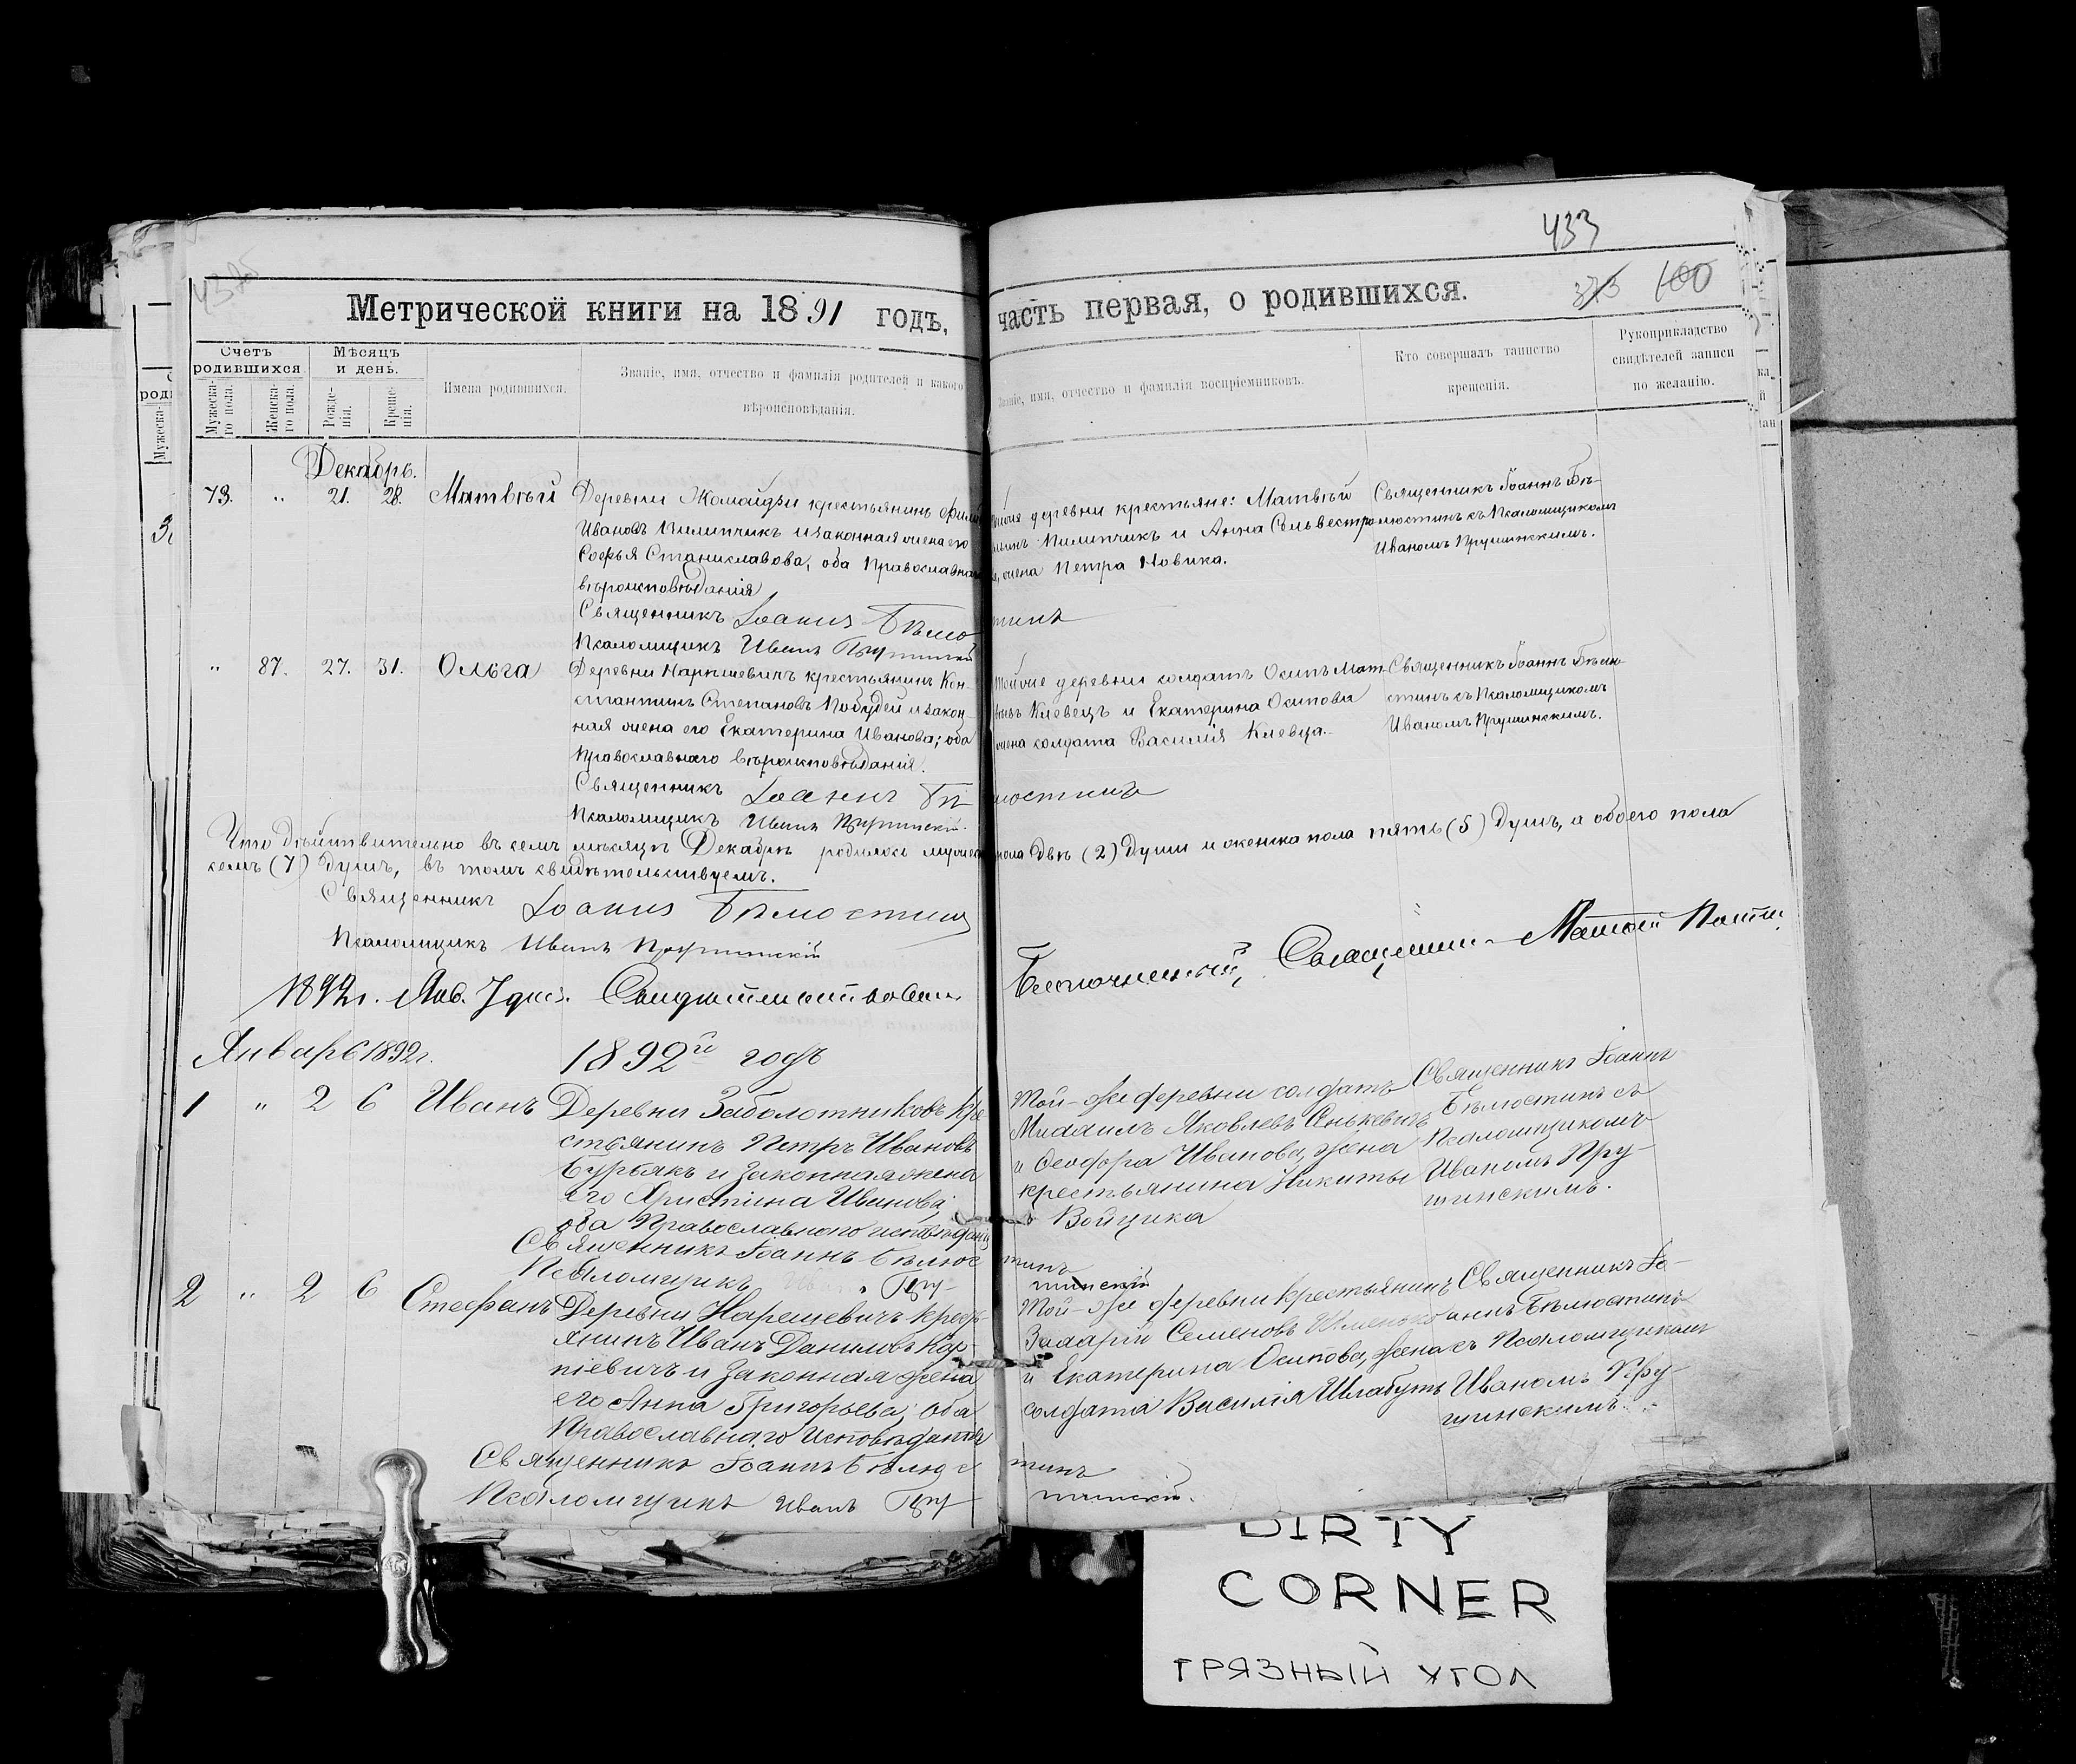 433
Метрической книги на 1891 годъ, часть первая, о родившихся.
373 100
Счетъ родившихся.
Мѣсяцъ и день.
Мужеска-го пола.
Женска-го пола.
Рожде-нія.
Креще-нія.
Имена родившихся.
Званіе, имя, отчество и фамилія родителей и какого
вѣроисповѣданія.
Званіе, имя, отчество и фамилія воспріемниковъ.
Кто совершалъ таинство
крещенія.
Рукоприкладство
свидѣтелей записи
по желанію.
Декабрь.
73. " 21. 28. Матвѣй
Деревни крестьянинъ
Ивановъ Пилипчикъ и законная жена его
Софья Станиславова, оба Православнаго
вѣроисповѣданія
Священникъ Іоаннъ
Псаломщикъ Иванъ
деревни крестьяне: Матвѣй
Пилипчикъ и Анна Сильвестро
жена Петра Новика.
Священникъ Іоаннъ Бѣ-
люстинъ съ Псаломщикомъ
Иваномъ Прушинскимъ.
" 87. 27. 31. Ольга
Деревни Наркевичъ крестьянинъ Кон-
стантинъ Степановъ и закон-
ная жена его Екатерина Иванова; оба
Православнаго вѣроисповѣданія.
Священникъ Іоаннъ Бѣ люстинъ
Псаломщикъ Иванъ Прушинскій.
Той же деревни солдатъ Осипъ Мат
Клевецъ и Екатерина Осипова
жена солдата Василія Клевца.
Священникъ Іоаннъ Бѣлю-
стинъ съ Псаломщикомъ
Иваномъ Прушинскимъ.
Что дѣйствительно въ семъ мѣсяцѣ Декабрѣ родилось мужеска пола двѣ (2) души и женска пола пять (5) душъ, а обоего пола
семь (7) душъ, въ томъ свидѣтельствуемъ.
Священникъ Іоаннъ Бѣлюстинъ
Псаломщикъ Иванъ Прушинскій
1892г. Янв. 7 дня. Свидѣтельствовалъ Благочинный, Священникъ
Январь 1892г.
1892й годъ
1 " 2 6 Иванъ
Деревни Заболотниковъ кре
стьянинъ Петръ Ивановъ
Бурьякъ и законная жена
его Христина Иванова;
оба Православнаго исповѣданія
Священникъ Іоаннъ Бѣлюс тинъ
Псаломщикъ Пру- шинскій
Той-же деревни солдатъ
Михаилъ Яковлевъ Санькевичъ
и Ѳеодора Иванова, жена
крестьянина Никиты
Войцика
Священникъ Іоаннъ
Бѣлюстинъ съ
Псаломщикомъ
Иваномъ Пру-
шинскимъ.
2 " 2 6 Стефанъ
Деревни крест
янинъ Иванъ Даниловъ Кар-
піевичъ и законная жена
его Анна Григорьева; оба
Православнаго исповѣданія
Священникъ Іоаннъ Бѣлюс тинъ
Псаломщикъ Иванъ Пру- шинскій.
Той-же деревни крестьянинъ
Захарій Семеновъ
и Екатерина Осипова, жена
солдата Василія Шлабутъ
Священникъ Іо-
аннъ Бѣлюстинъ
съ Псаломщикомъ
Иваномъ Пру-
шинскимъ.
DIRTY
CORNER
ГРЯЗНЫЙ УГОЛ